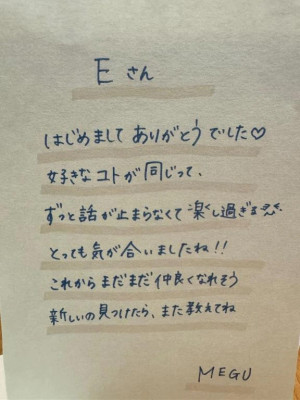 Eさん
はじめまして ありがとうでした♡
好きなコトが同じって、
ずっと話が止まらなくて楽し過ぎる
とっても気が合いましたね!!
これからまだまだ仲良くなれそう
新しいの見つけたら、また教えてね
MEGU